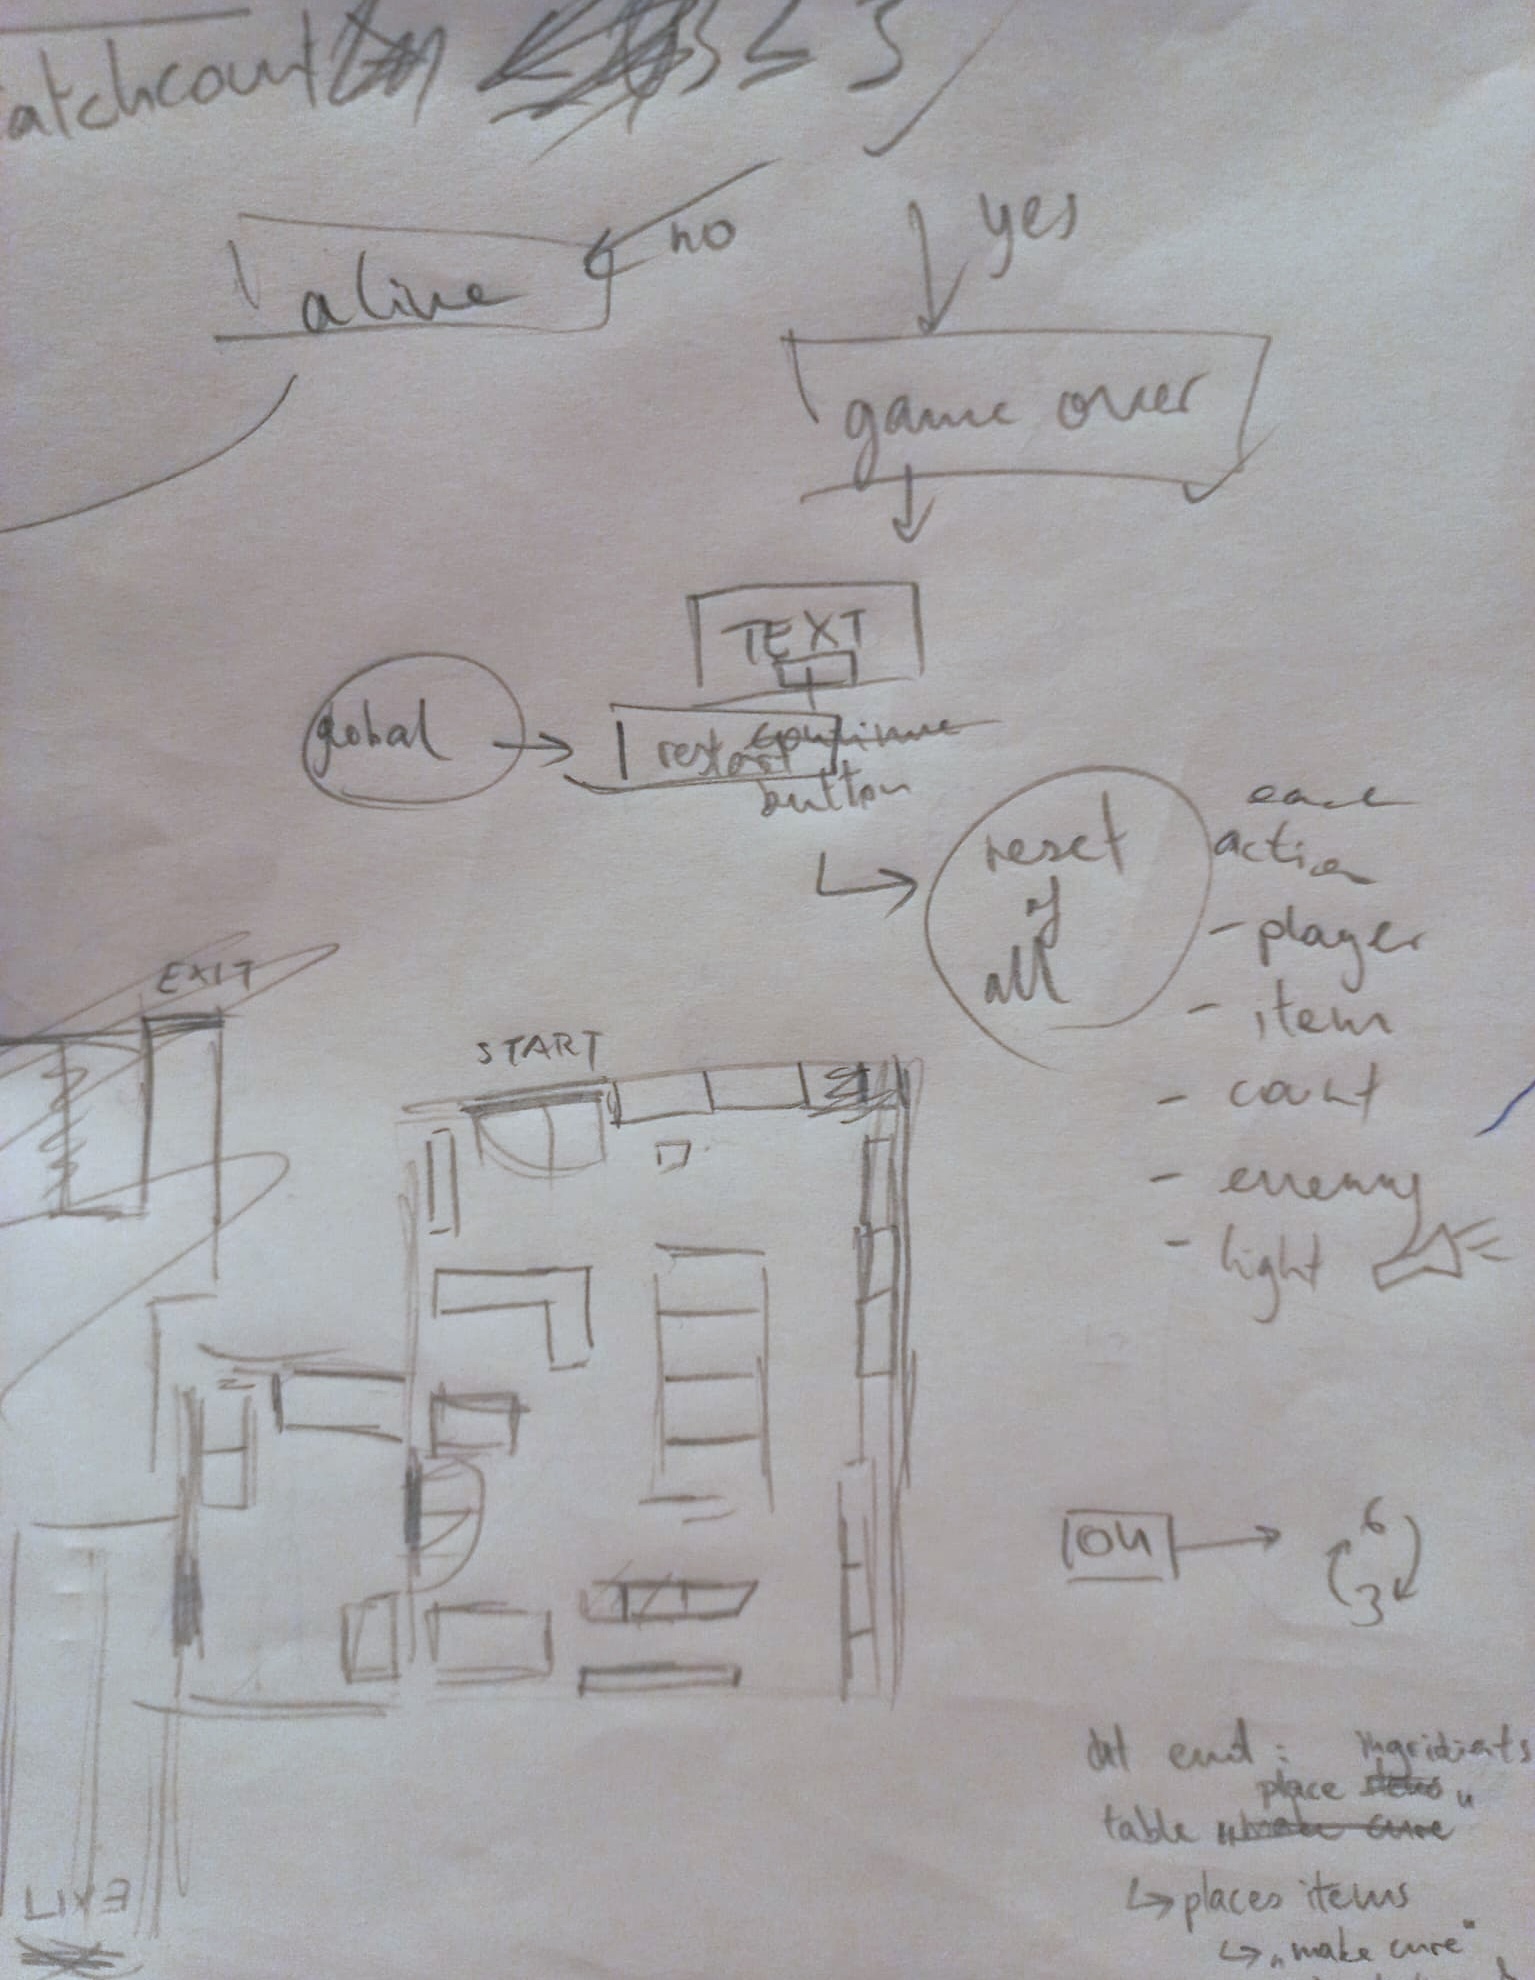 atchcount 3 < 3
no
yes
alive
game over
TEXT
global
restart continue
button
reset
of
all
each
action
- player
- item
- count
- enemy
- light
EXIT
START
ON
6
3
at end : ingridients
place items "
table "make cure
↳ places items
↳ „make cure"
EXIT